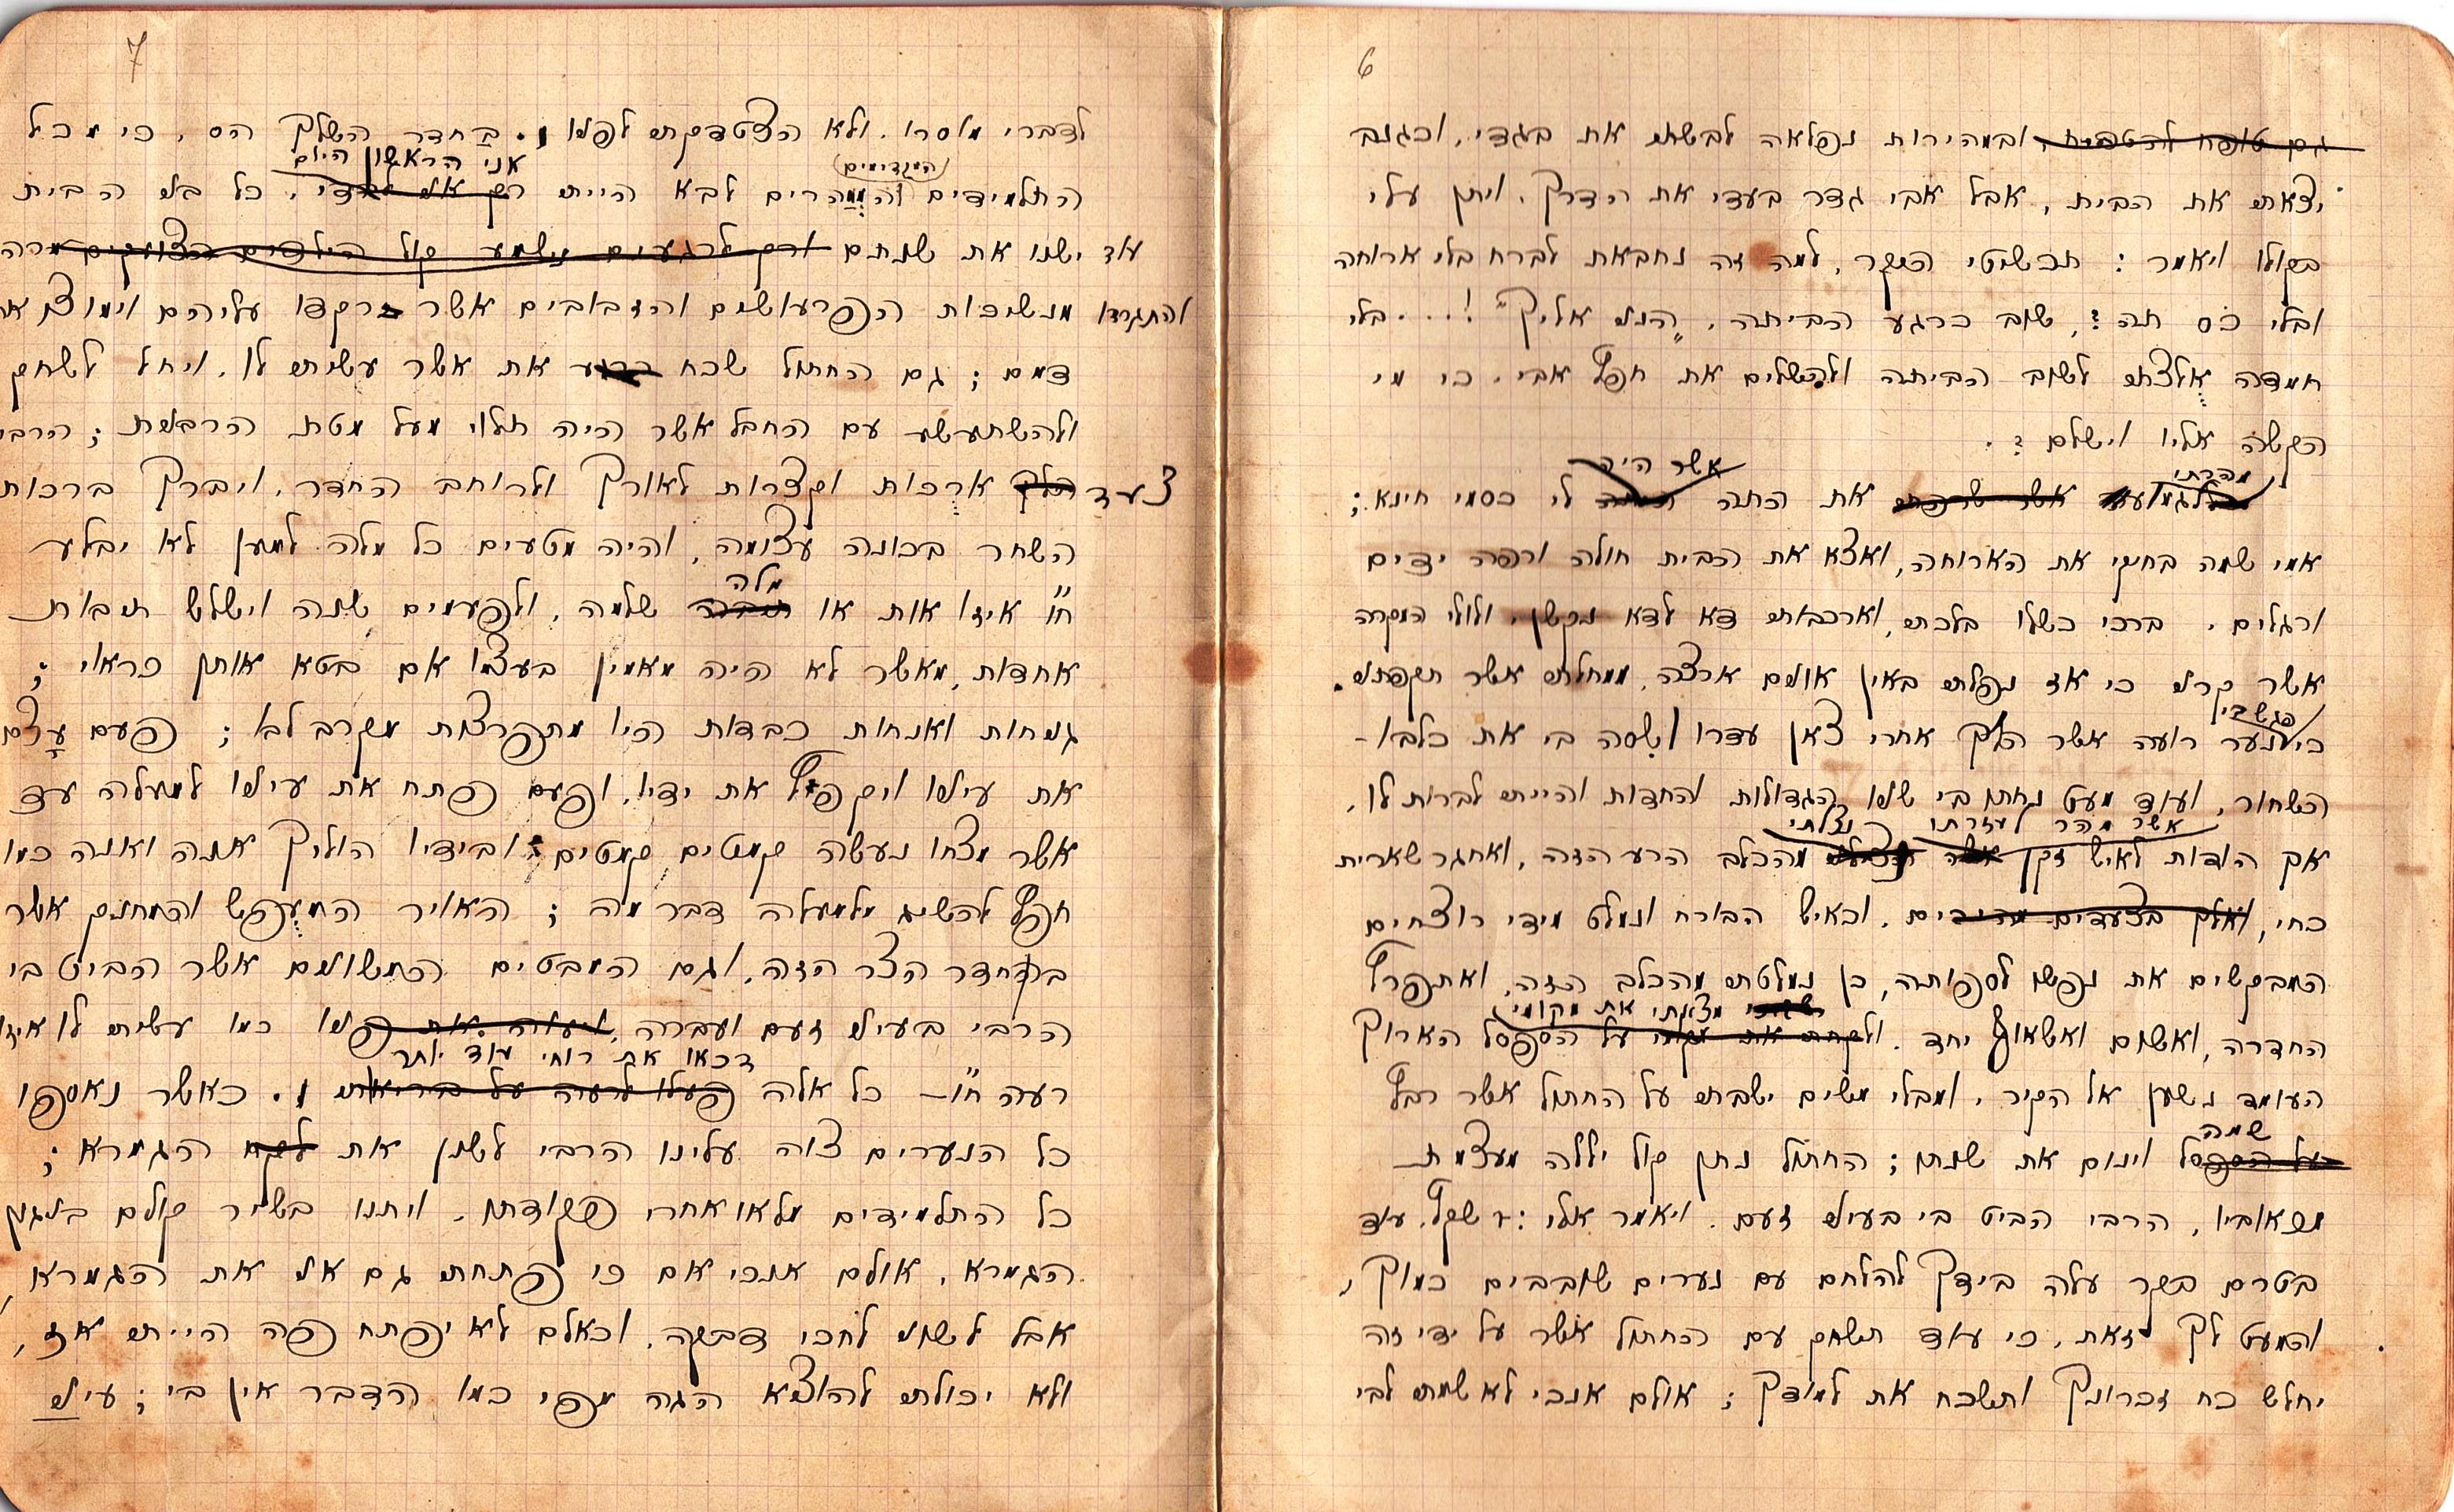 6
ובמהירות נפלאה לבשתי את בגדי, וכגנב
יצאתי את הבית, אבל אבי גדר בעדי את הדרך, ויתן עלי
בקולו ויאמר: תכשיטי היקר, למה זה נחבאת לברח בלי ארוחה
ובלי כס תה?, שוב כרגע הביתה, "הנני אליך"!... בלי
חמדה אלצתי לשוב הביתה ולהשלים את חפץ אבי, כי מי
הקשה אליו וישלם?.
מהרתי
אשר היה
את התה לי כסמי חינא;
אמי שמה בחיקי את הארוחה, ואצא את הבית חולה ורפה ידים
ורגלים. ברכי כשלו בלכתי, וארכבותי דא לדא נקשן, ולולי המקרה
אשר קרני כי אז נפלתי באין אונים ארצה, ממחלתי אשר תקפתני.
פגש בי
כי נער רועה אשר הלך אחרי צאן עדרו ושסה בי את כלבו–
השחור, ועוד מעט נחתו בי שניו הגדולות והחדות והייתי לברות לו,
אשר מהר לעזרתי נצלתי
אך הודות לאיש זקן מהכלב הרע הזה, ואחגר שארית
כחי, ואלך בצעדים מהירים. וכאיש הבורח ונמלט מידי רוצחים
המבקשים את נפשו לספותה, כן נמלטתי מהכלב הזה, ואתפרץ
מצאתי את מקומי
החדרה, ואשום ואשאוף יחד. על הספסל הארוך
העומד נשען אל הקיר, ומבלי משים ישבתי על החתול אשר רבץ
שמה
וינום את שנתו; החתול נתן קול יללה מעצמת
מכאוביו, הרבי הביט בי בעיני זעם. ויאמר אלי: שקץ, עוד
בטרם בקר עלה בידך להלחם עם נערים שובבים כמוך,
והמעט לך זאת, כי עוד תשחק עם החתול אשר על ידי זה
יחלש כח זכרונך ותשכח את למודך; אולם אנכי לא שמתי לבי
7
לדברי מוסרו, ולא הצטדקתי לפניו. בחדר השלך הס, כי מכל
אני הראשון היום
(המקדימים)
התלמידים והממהרים לבא הייתי, כל בני הבית
עוד ישנו את שנתם
והתגרדו מנשיכות הפרעושים והזבובים אשר רקדו עליהם וימוצו את
דמם; גם החתול שכח את אשר עשיתי לו, ויחל לשחק
ולהשתעשע עם החבל אשר היה תלוי מעל מטת הרבנית; הרבי
צעד ארכות וקצרות לאורך ולרוחב החדר, ויברך ברכות
השחר בכונה עצומה, והיה מטעים כל מלה למען לא יבלע
מלה
ח"ו איזו אות או שלמה, ולפעמים שנה וישלש תיבות
אחדות, מאשר לא היה מאמין בעצמו אם בטא אותן כראוי;
גניחות ואנחות כבדות היו מתפרצות מקרב לבו; פעם עצם
את עיניו ויקפץ את ידיו, ופעם פתח את עיניו למעלה עד
אשר מצחו נעשה קמטים קמטים, ובידיו הוליך אנה ואנה כמו
חפץ להשיג מלמעלה דבר מה; האויר המעפש והמחניק אשר
בחדר הצר הזה, וגם המבטים המשונים אשר הביט בי
הרבי בעיני זעם ועברה, כמו עשיתי לו איזו
דכאו את רוחי עוד יותר
רעה ח"ו– כל אלה. כאשר נאספו
כל הנערים צוה עלינו הרבי לשנן את הגמרא;
כל התלמידים מלאו אחרי פקודתו, ויתנו בשיר קולם בניגון
הגמרא, אולם אנכי אם כי פתחתי גם אני את הגמרא,
אבל לשוני לחכי דבקה, וכאלם לא יפתח פה הייתי אז,
ולא יכולתי להוציא הגה מפי כמו הדבר אין בי; עיני